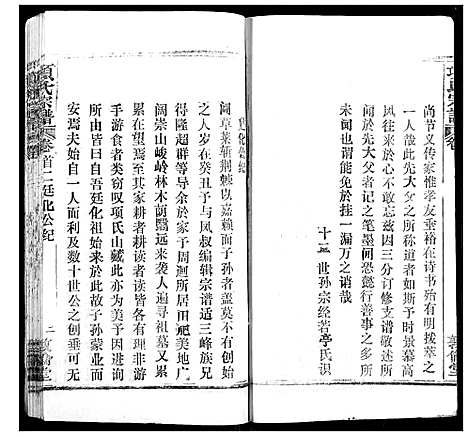 項氏宗譜
尚节义传家惟孝友垂裕在诗书殆有明拔萃之
一人哉此先大父之所称道者如斯予时景慕高
风往来于心不敢忘兹因三分订修支谱敬述所
闻於先大父者记之笔墨间恐懿行善事之多所
未闻也谓能免於挂一漏万之诮哉
十世孙宗经若亭氏识
敦倫堂
廷化公纪
闻草莱斩荆棘以嘉赖而子孙者盖莫不有创
之人岁在癸丑予与凤叔编辑宗谱适三峰族兄
得隆超群等导余於家于周迴所居田肥美地广
阔崇山峻岭林木荫翳远来袭人遍寻祖墓又累
累在望焉至其家耕者耕读者读皆各有理非游
手游食者类窃叹项氏山藏此亦为美予因进询
其详皆曰自吾廷化祖始来於此故子孙蒙业而
安焉夫始自一人而利及数十世公之创垂可无
項氏宗譜
卷首二
廷化公纪
二
敦倫堂